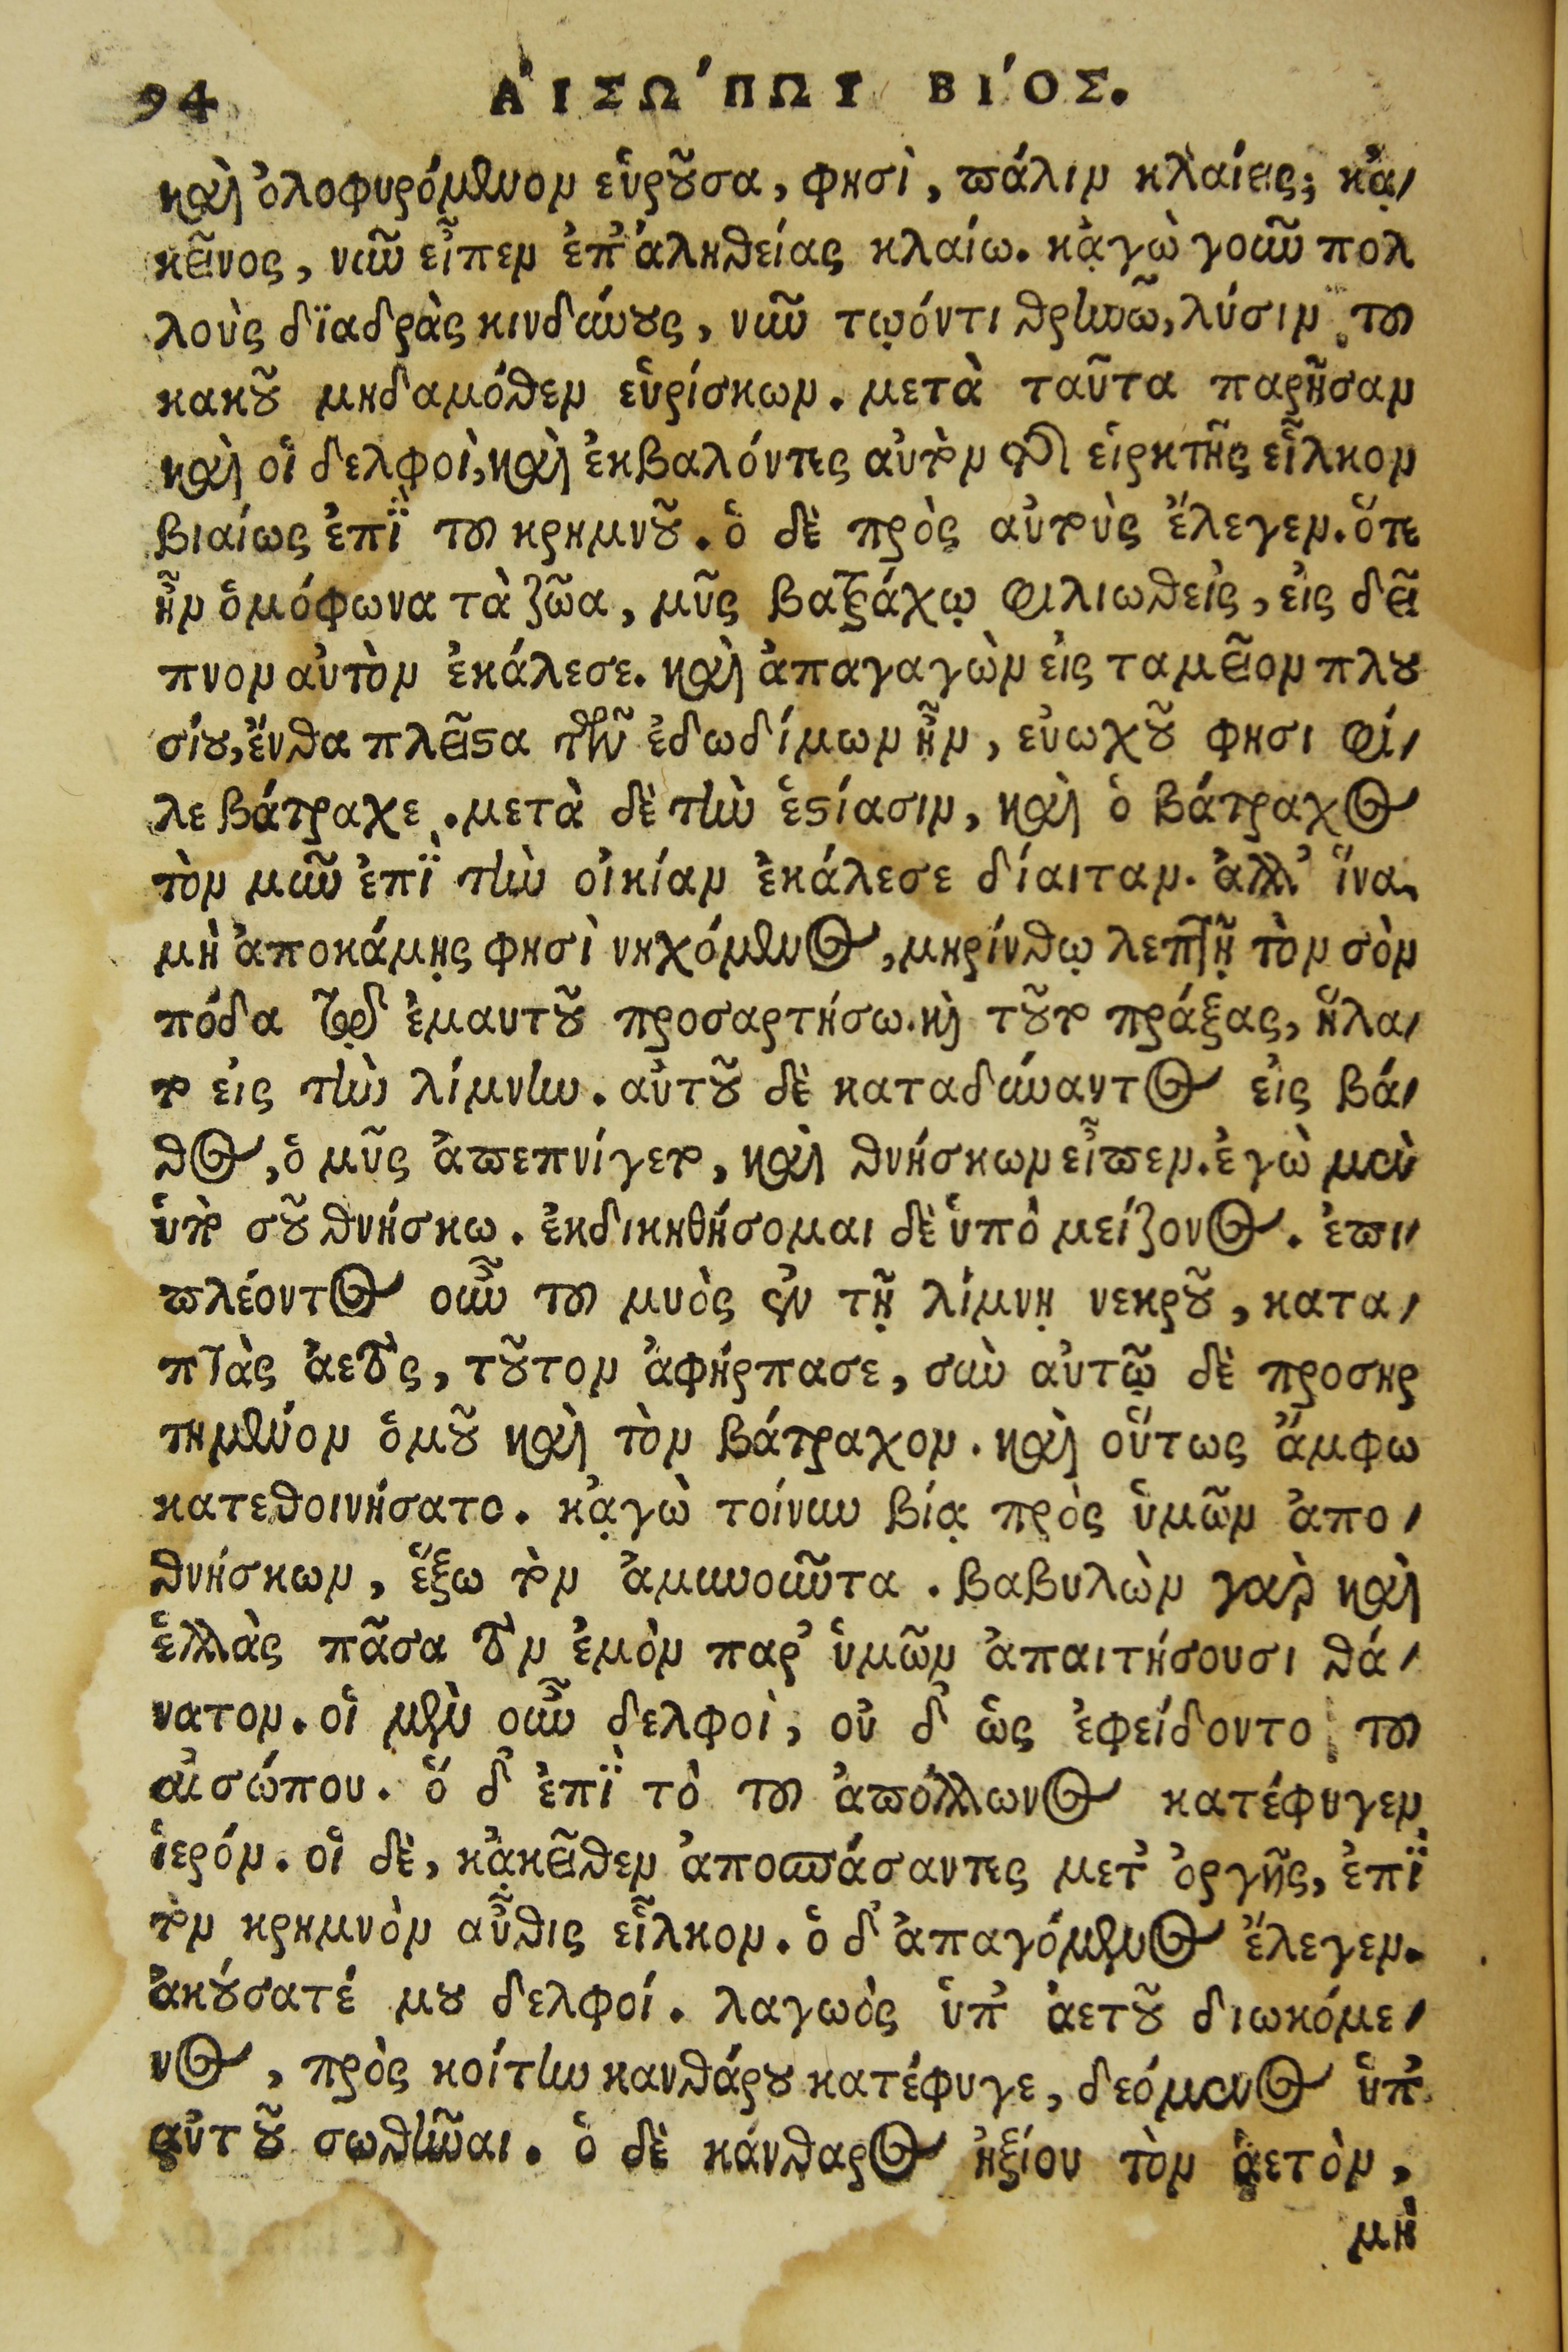 94 ΑἸΣΩ´ΠΩΥ ΒΙ´ΟΣ.
καὶ ὀλοφυρόμενον εὑροῦσα, φησὶ, πάλιν κλαίεις; κᾀ-
κεῖνος, νῦν εἶπεν ἐπ' ἀληθείας κλαίω. κᾀγὼ γοῦν πολ
λοὺς δϊαδρὰς κινδύνους, νῦν τῳόντι θρηνῶ, λύσιν τοῦ
κακοῦ μηδαμόθεν εὑρίσκων. μετὰ ταῦτα παρῆσαν
καὶ οἱ δελφοὶ, καὶ ἐκβαλόντες αὐτὸν τῆς εἱρκτῆς εἷλκον
βιαίως ἐπῒ τοῦ κρημνοῦ. ὁ δὲ πρὸς αὐτοὺς ἔλεγεν. ὅτε
ἦν ὁμόφωνα τὰ ζῶα, μῦς βατράχῳ φιλιωθεὶς, εἰς δεῖ
πνον αὐτὸν ἐκάλεσε. καὶ ἀπαγαγὼν εἰς ταμεῖον πλου
σίου, ἔνθα πλεῖστα τῶν ἐδωδίμων ἦν, εὐωχοῦ φησι φί-
λε βάτραχε. μετὰ δὲ τὴν ἑστίασιν, καὶ ὁ βάτραχος
τὸν μῦν ἐπῒ τὴν οἰκίαν ἐκάλεσε δίαιταν. ἀλλ' ἵνα
μὴ ἀποκάμῃς φησὶ νηχόμενος, μηρίνθῳ λεπτῇ τὸν σὸν
πόδα τῷδ ἐμαυτοῦ προσαρτήσω. καὶ τοῦτο πράξας, ἥλα-
το εἰς τὴν λίμνην. αὐτοῦ δὲ καταδύναντος εἰς βά-
θος, ὁ μῦς ἀπεπνίγετο, καὶ θνήσκων εἶπεν. ἐγὼ μὲν
ὑπὸ σοῦ θνήσκω. ἐκδικηθήσομαι δὲ ὑπὸ μείζονος. ἐπι-
πλέοντος οὖν τοῦ μυὸς ἐν τῇ λίμνῃ νεκροῦ, κατα-
πτὰς ἀετὸς, τοῦτον ἀφήρπασε, σὺν αὐτῷ δὲ προσηρ
τημένον ὁμοῦ καὶ τὸν βάτραχον. καὶ οὕτως ἄμφω
κατεθοινήσατο. κᾀγὼ τοίνυν βίᾳ πρὸς ὑμῶν ἀπο-
θνήσκων, ἕξω τὸν ἀμυνοῦντα. βαβυλὼν γαρ καὶ
ἑλλὰς πᾶσα τὸν ἐμὸν παρ' ὑμῶν ἀπαιτήσουσι θά-
νατον. οἱ μὲν οὖν δελφοὶ, οὐ δ' ὣς ἐφείδοντο τοῦ
αἰσώπου. ὅ δ' ἐπῒ τὸ τοῦ ἀπόλλωνος κατέφυγεν
ἱερόν. οἱ δὲ, κᾀκεῖθεν ἀποσπάσαντες μετ' ὀργῆς, ἐπῒ
τὸν κρημνὸν αὖθις εἷλκον. ὁ δ' ἀπαγόμενος ἔλεγεν.
ἀκούσατέ μου δελφοί. λαγωὸς ὑπ' ἀετοῦ διωκόμε-
νος, πρὸς κοίτην κανθάρου κατέφυγε, δεόμενος ὑπ'
αὐτοῦ σωθῆναι. ὁ δὲ κάνθαρος ἠξίου τὸν ἀετὸν,
μὴ